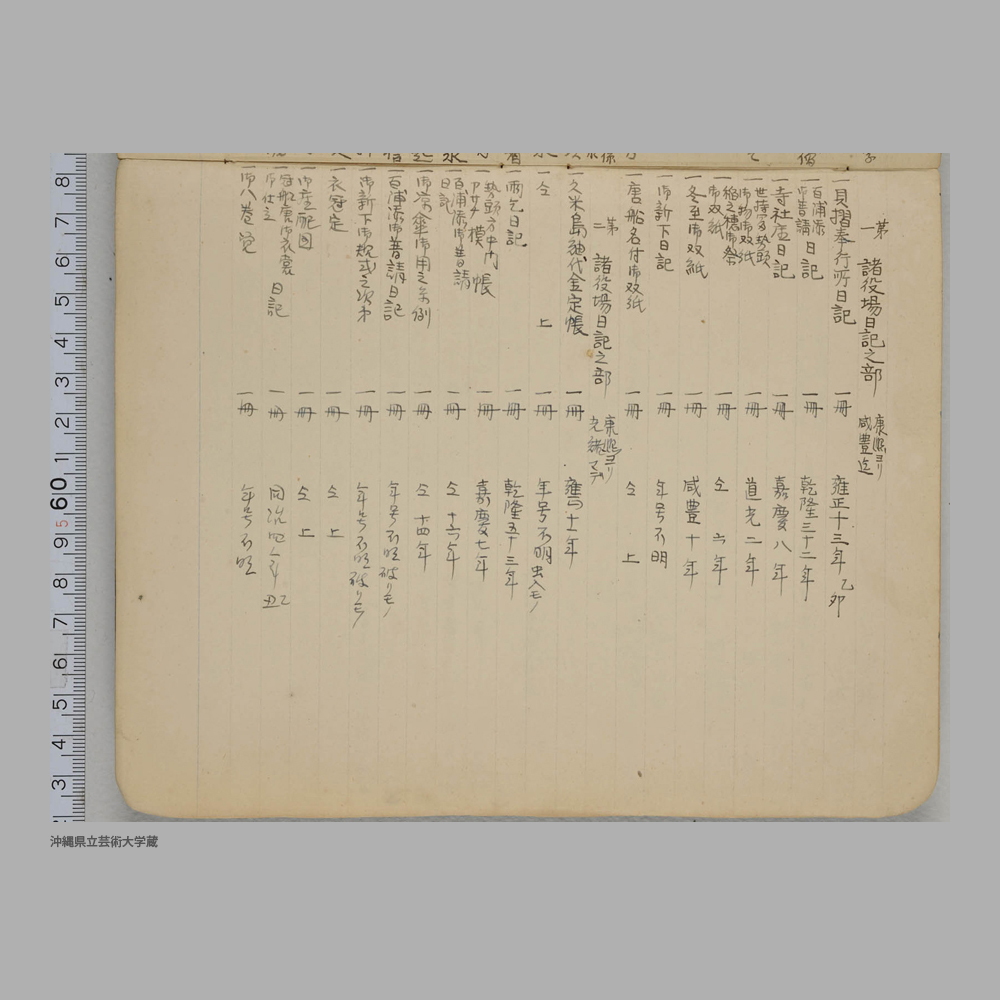 第一 諸役場日記之部 康熙ヨリ 咸豊迄
一貝摺奉行所日記 一冊 雍正十三年乙卯
一百浦添御普請日記 一冊 乾隆三十二年
一寺社座日記 一冊 嘉慶八年
一世持 勢頭御物御双紙 一冊 道光二年
一稲之穂御祭御双紙 一冊 仝 六年
一冬至御双紙 一冊 咸豊十年
一御新下日記 一冊 年号不明
一唐船名付御双紙 一冊 仝 上
第二 諸役場日記之部 康熙ヨリ 光緒マデ
一久米島紬代金定帳 一冊 雍正十一年
一仝 上 一冊 年号不明虫入モノ
一雨乞日記 一冊 乾隆五十三年
一勢頭方中内 模帳 一冊 嘉慶七年
一百浦添御普請日記 一冊 仝 十六年
一御凉傘御用之条例 一冊 仝 十四年
一百浦添御普請日記 一冊 年号不明破リモノ
一御新下御規式之次第 一冊 年号不明破リモノ
一衣冠定 一冊 仝 上
一御座配図 一冊 仝 上
一冠船唐御衣裳御仕立日記 一冊 同治四年乙丑
一御八巻 一冊 年号不明
沖縄県立芸術大学蔵